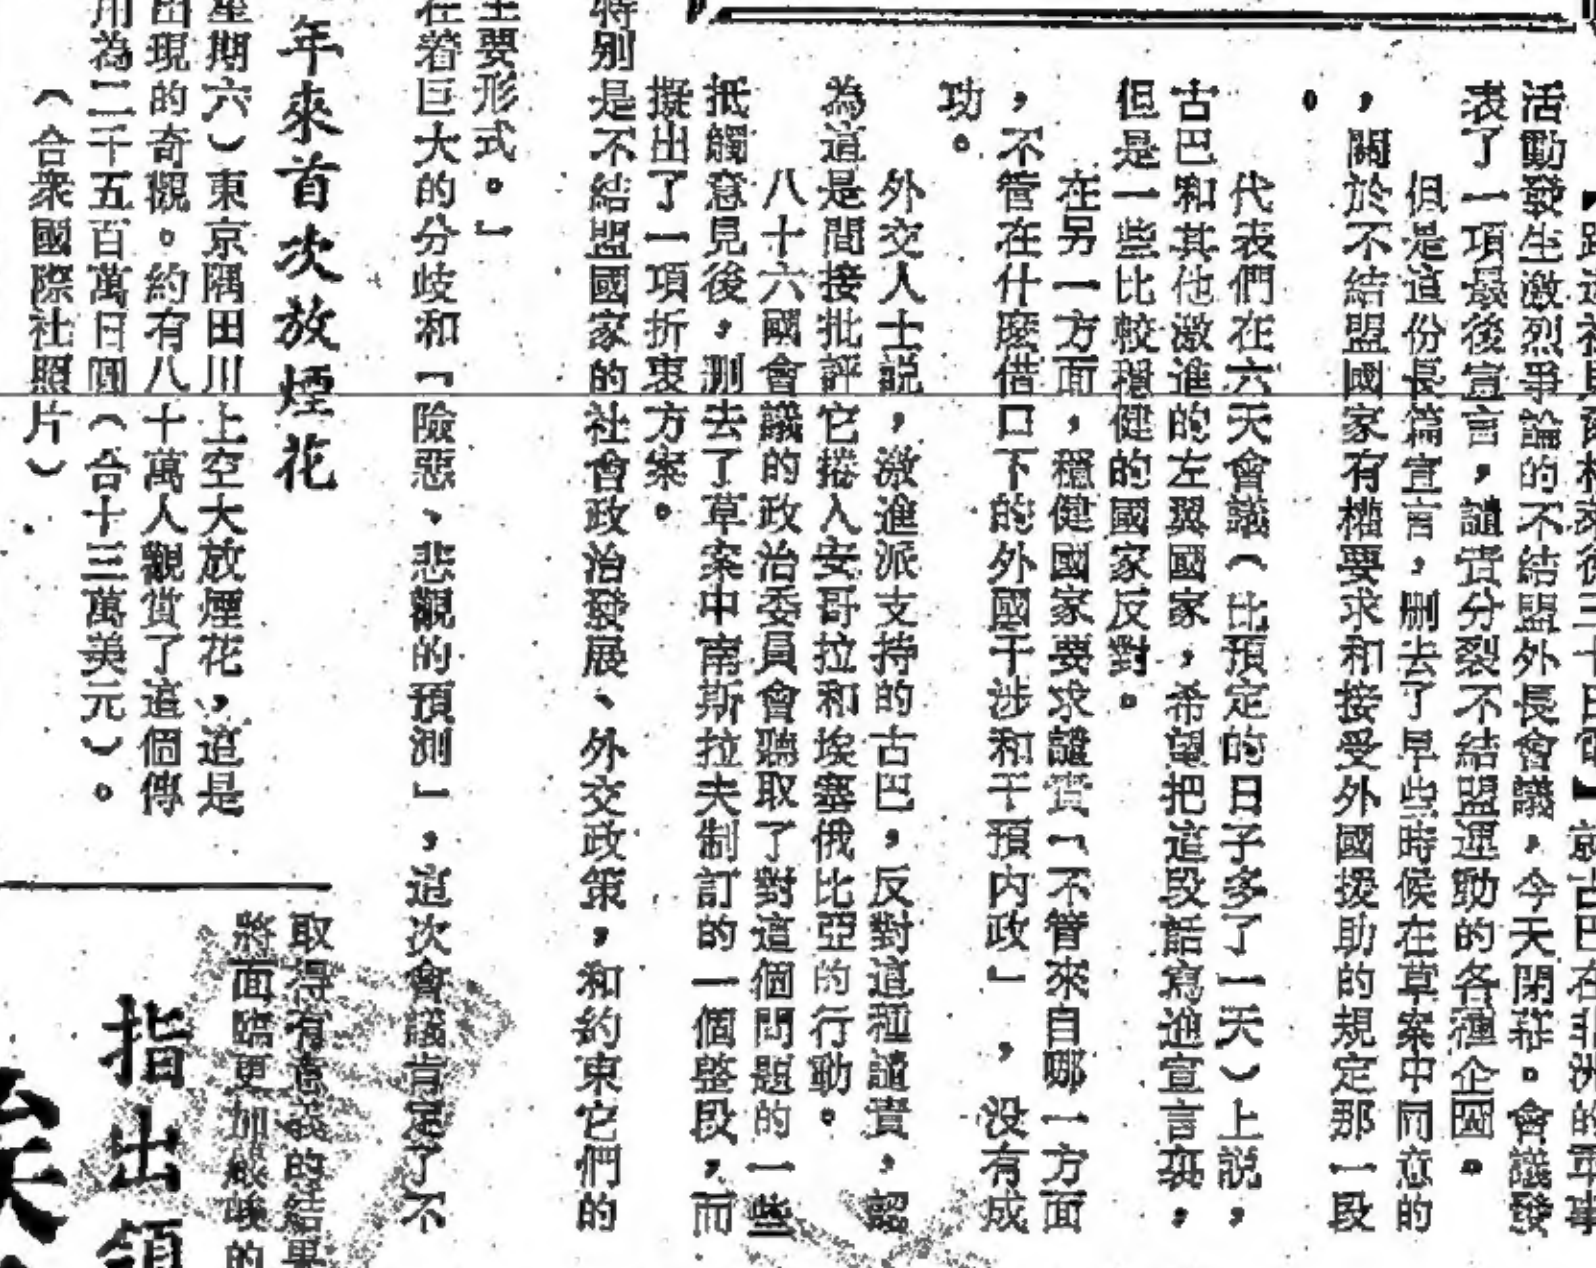 活動發生激烈爭論的不結盟外長會議，今天閉幕。會議發
表了一項最後宣言，譴責分裂不結盟運動的各種企圖。
但是這份長篇宣言，刪去了早些時候在草案中同意的
，關於不結盟國家有權要求和接受外國援助的規定那一段
。
代表們在六天會議（比預定的日子多了一天）上說，
古巴和其他激進的左翼國家，希望把這段話寫進宣言裏，
但是一些比較穩健的國家反對。
在另一方面，穩健國家要求譴責「不管來自哪一方面
，不管在什麼借口下的外國干涉和干預內政」，没有成
功。
外交人士説，激進派支持的古巴，反對這種譴責，認
為這是間接批評它捲入安哥拉和埃塞俄比亞的行動。
八十六國會議的政治委員會聽取了對這個問題的一些
抵觸意見後，刪去了草案中南斯拉夫制訂的一個整段，而
擬出了一項折衷方案。
特别是不結盟國家的社會政治發展、外交政策，和約束它們的
主要形式。」
在着巨大的分歧和「險惡、悲觀的預測」，這次會議肯定了不
年來首次放煙花
星期六）東京隅田川上空大放煙花，這是
出現的奇觀。約有八十萬人觀賞了這個傳
用為二千五百萬日圓（合十三萬美元）。
（合衆國際社照片）
取得有意義的結果
將面臨更加嚴峻的
指出領